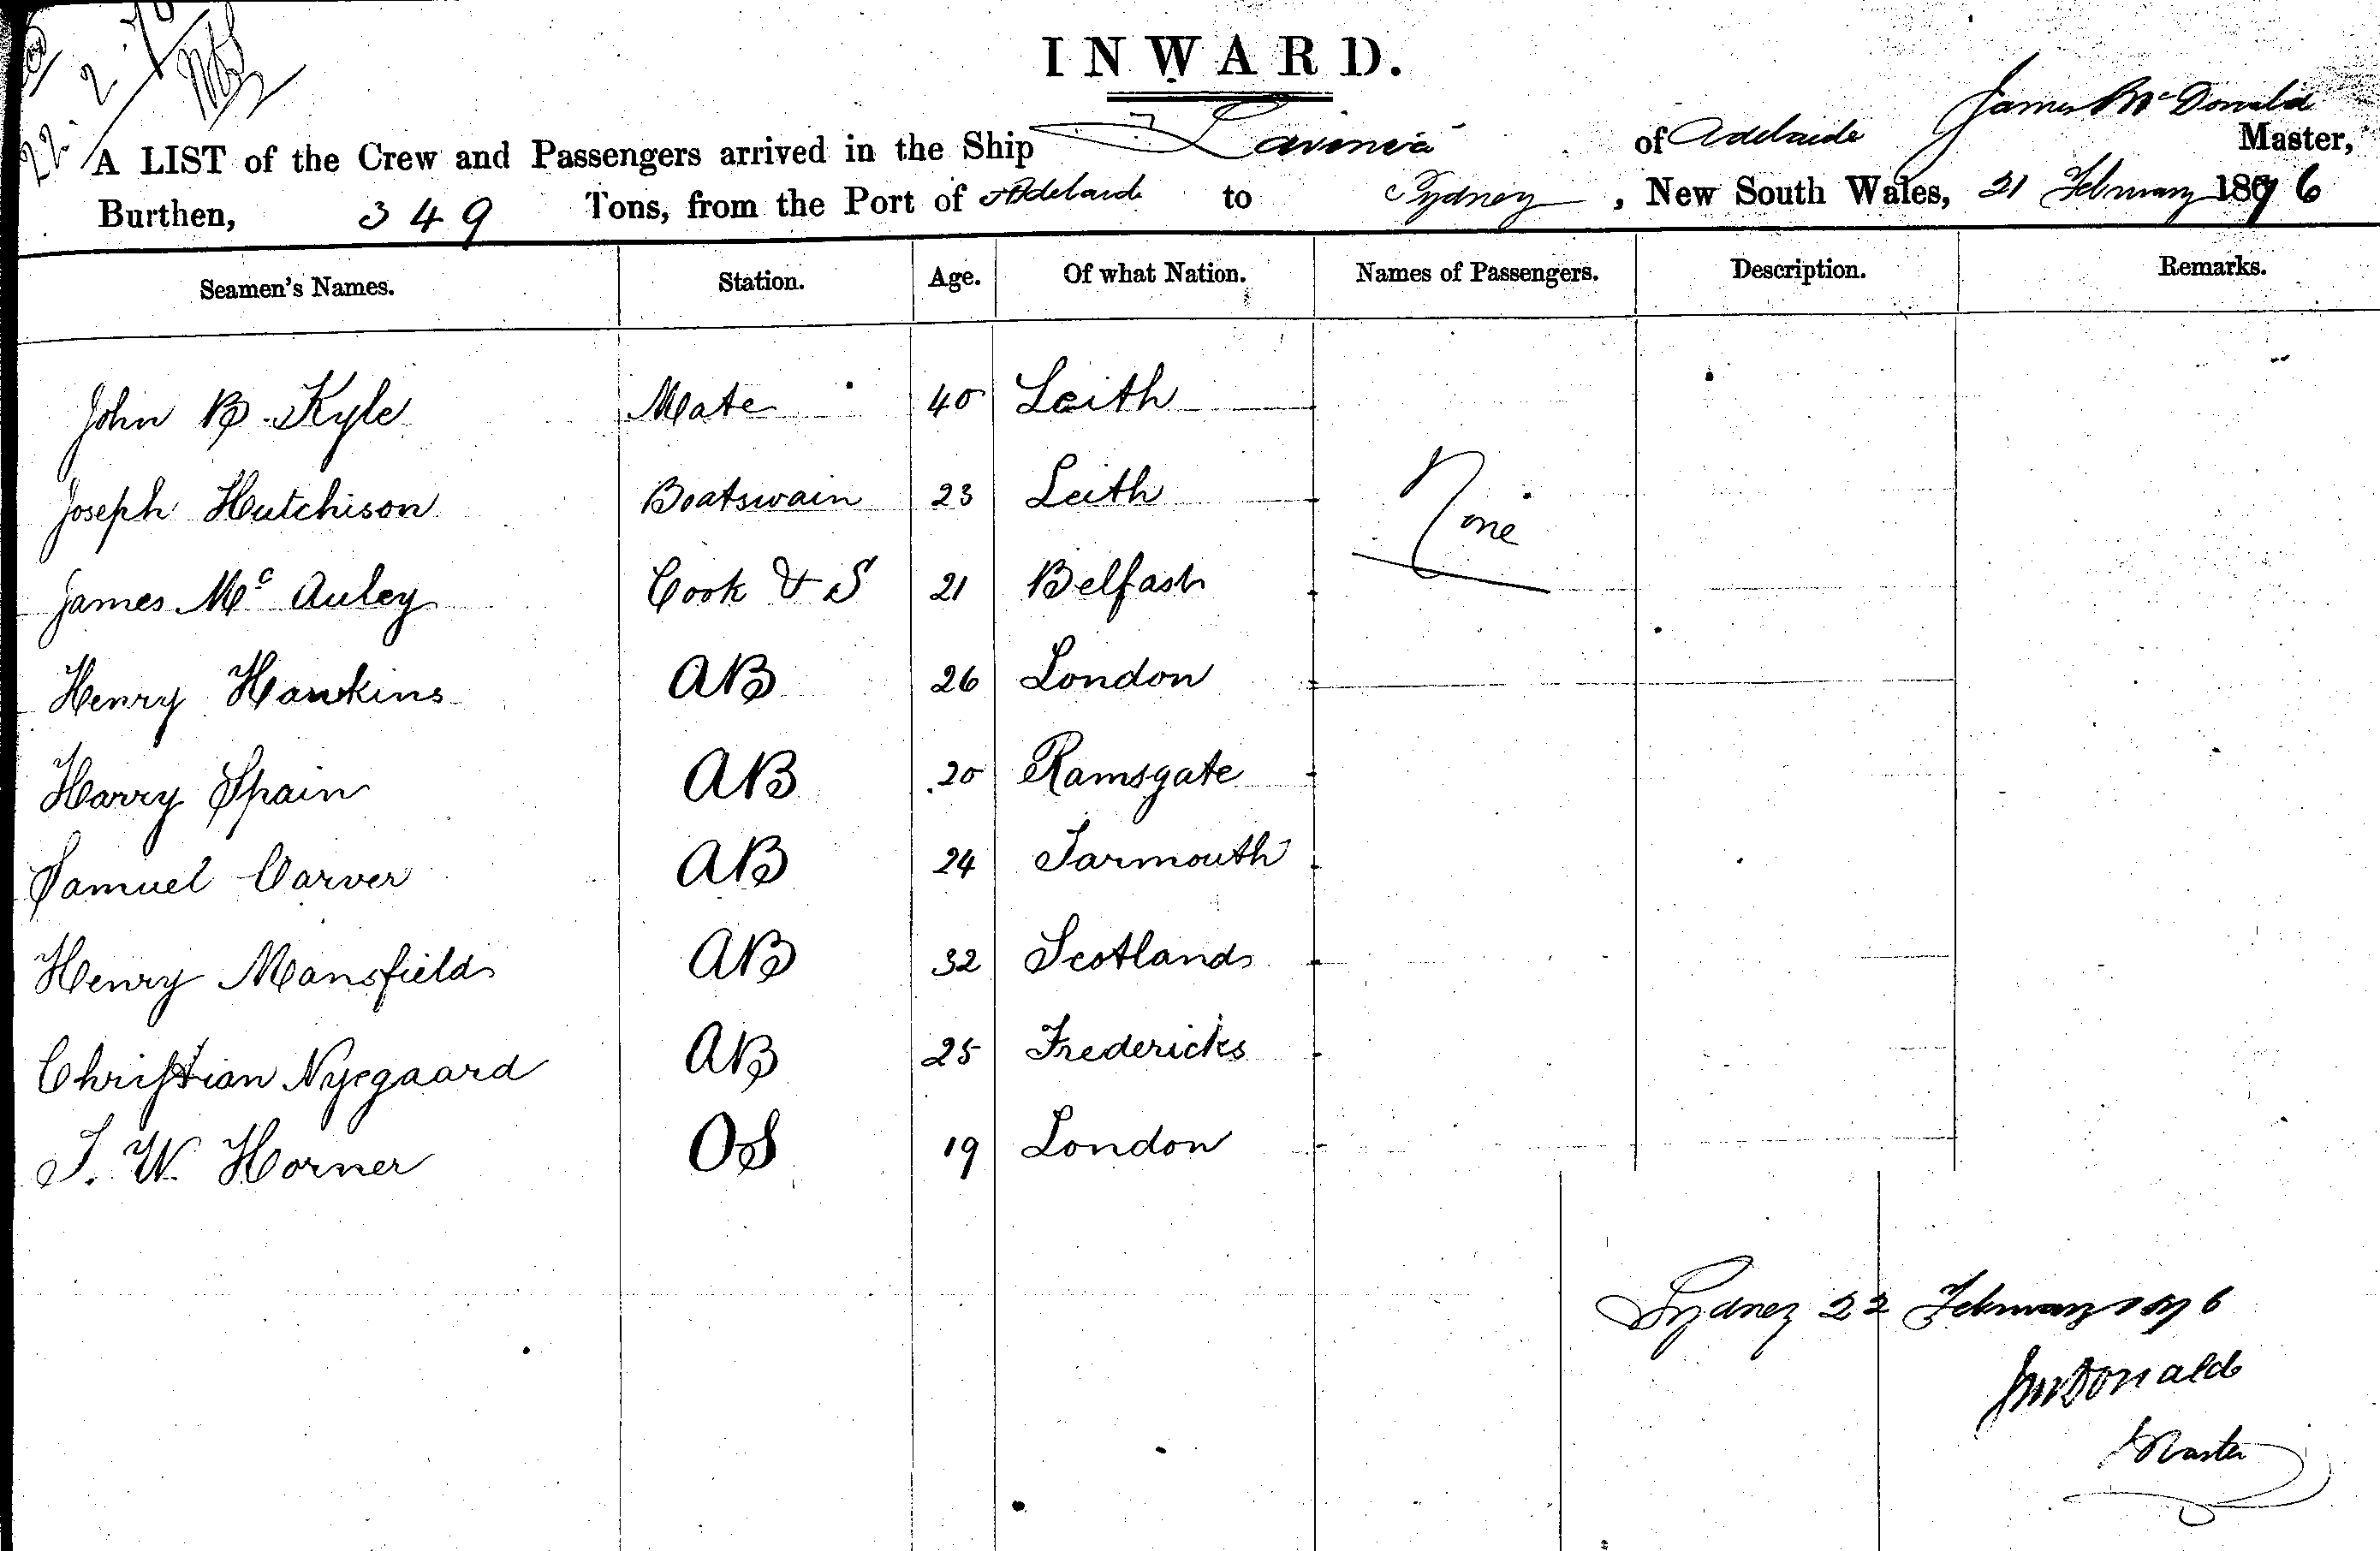 22. 2. 76
INWARD.
James McDonald
A LIST of the Crew and Passengers arrived in the Ship Lavinia of Adelaide Master,
Burthen, 349 Tons, from the Port of Adelaide to Sydney, New South Wales, 21 February 1876
Seamen's Names. Station. Age. Of what Nation. Names of Passengers. Description. Remarks.
John B Kyle Mate 40 Leith
Joseph Hutchison Boatswain 23 Leith None
James Mc Auley Cook & S 21 Belfast
Henry Hawkins AB 26 London
Harry Spain AB 20 Ramsgate
Samuel Carver AB 24 Yarmouth
Henry Mansfield AB 32 Scotland
Christian Nyegaard AB 25 Fredericks
J. W. Horner OS 19 London
Sydney 22 February 1876
JMcDonald
Master